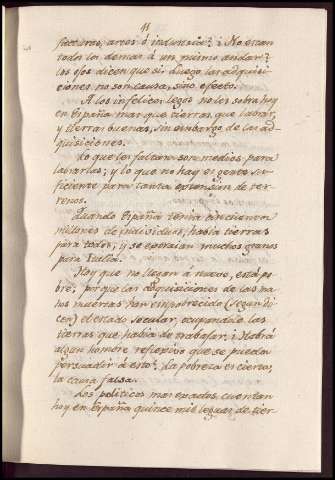 41
facturas, artes ó industria? ¿No eran
todos los demas á un mismo andar?
los ojos dicen que si: luego las adquisi-
ciones no son causa, sino efecto.
A los infelices legos no les sobra hoy
en España mas que tierras que labrar,
y tierras buenas, sin embargo de las ad-
quisiciones.
Lo que les falta son medios para
labrarlas; y lo que no hay es gente su-
ficiente para tanta extension de ter-
renos.
Quando España tenia cincuenta
millones de individuos, habia tierras
para todos; y se extraian muchos granos
para Italia.
Hoy que no llegan á nueve, está po-
bre; porque las adquisiciones de las ma-
nos muertas han empobrecido (segun di-
cen) el estado secular, ocupandole las
tierras que habia de trabajar. ¿Habrá
algun hombre reflexivo que se pueda
persuadir á esto? La pobreza es cierta,
la causa falsa.
Los politicos mas exactos, cuentan
hoy en España quince mil leguas de tier-